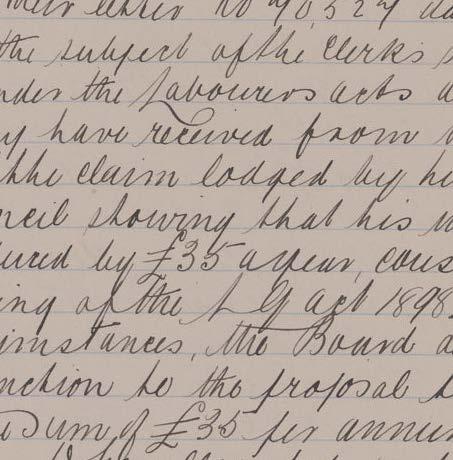 letter No 40,527 da
the subject of the Clerks
nder the Labourers acts a
y have received from
the claim lodged by hi
ncil showing that his
uced by £35 a year, cons
ing of the L G act 1898
umstances, the Board d
nction to the proposal t
e Sum of £35 per annum